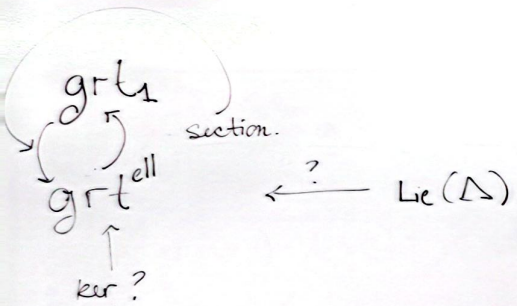 grt₁
section.
grt^ell
?
Lie(Δ)
ker ?